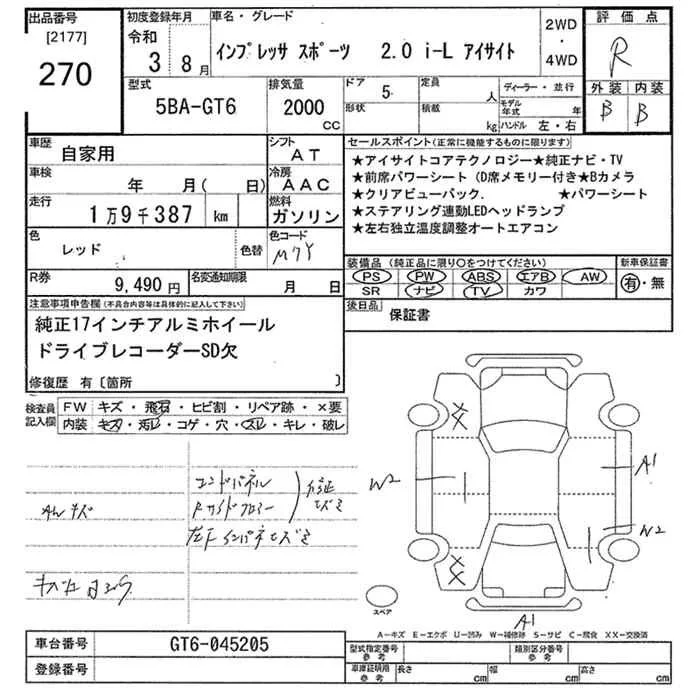 出品番号
[2177]
270
初度登録年月
令和
3 8月
車名・グレード
インプレッサ スポーツ 2.0 i-L アイサイト
2WD
・
4WD
評価点
R
外装 内装
B B
型式
5BA-GT6
排気量
2000
CC
ドア
5
形状
定員
人
積載
kg
ディーラー・並行
モデル年式 年
ハンドル 左・右
車歴
自家用
シフト
AT
車検
年 月( 日)
冷房
AAC
走行
1万9千387 km
燃料
ガソリン
色
レッド
色替
色コード
M7Y
R券
9,490円
名変通知期限
月 日
セールスポイント(正常に機能するものに限ります)
★アイサイトコアテクノロジー★純正ナビ・TV
★前席パワーシート(D席メモリー付き★Bカメラ
★クリアビューパック. ★パワーシート
★ステアリング連動LEDヘッドランプ
★左右独立温度調整オートエアコン
装備品(純正品に限り○をつけてください)
PS PW ABS エアB AW
SR ナビ TV カワ
新車保証書
有・無
後日品
保証書
注意事項申告欄(不具合内容等は具体的に記入して下さい)
純正17インチアルミホイール
ドライブレコーダーSD欠
修復歴 有〔箇所 〕
検査員
記入欄
FW キズ・飛石・ヒビ割・リペア跡・×要
内装 キズ・汚レ・コゲ・穴・スレ・キレ・破レ
エンドパネル
Rサイドフロアー
修正
エズミ
AWキズ
左Fインパネエズミ
XX
W2
A1
W2
XX
A1
スペア
A－キズ E－エクボ U－凹み W－補修跡 S－サビ C－腐食 XX－交換済
車台番号
GT6-045205
登録番号
型式指定番号
参考
類別区分番号
参考
車庫証明用
参考
長さ cm
幅 cm
高さ cm